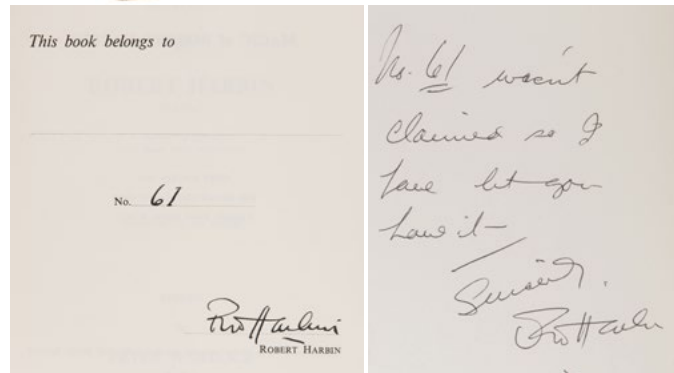 This book belongs to
No. 61
Robt Harbin
ROBERT HARBIN
No. 61 wasn't
claimed so I
have let you
have it —
Sincerely,
Robt Harbin